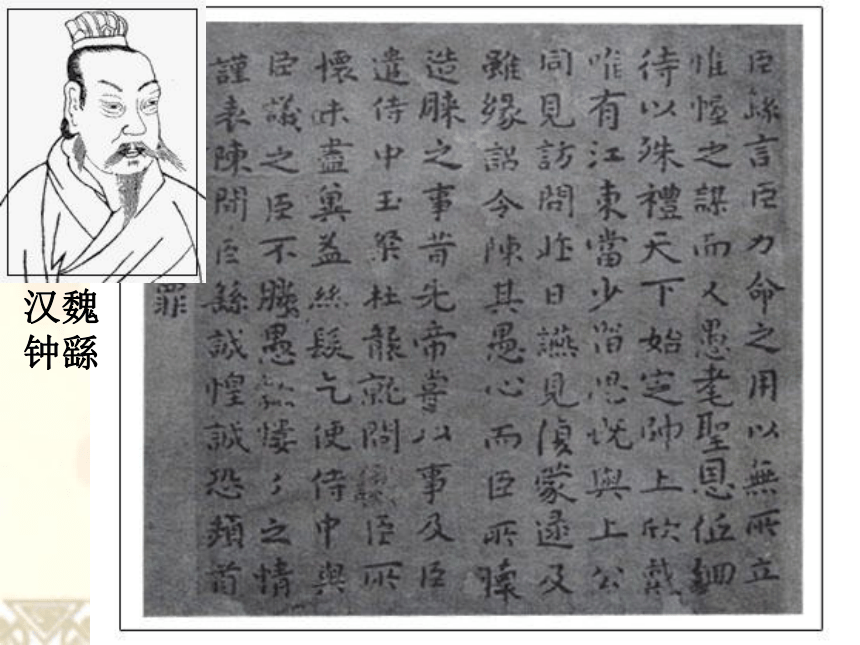 汉魏
钟繇
臣繇言臣力命之用以無所立
惟幄之謀而又愚耄聖恩低徊
待以殊禮天下始定帥土欣戴
唯有江東當少留思既與上公
同見訪問昨日讌見復蒙逮及
雖緣詔令陳其愚心而臣所懷
造膝之事昔先帝嘗以事及臣
遣侍中王粲杜襲就問臣所
懷未盡冀益絲髮乞便侍中與
臣議之臣不勝愚款慺々之情
謹表陳聞臣繇誠惶誠恐頓首
罪